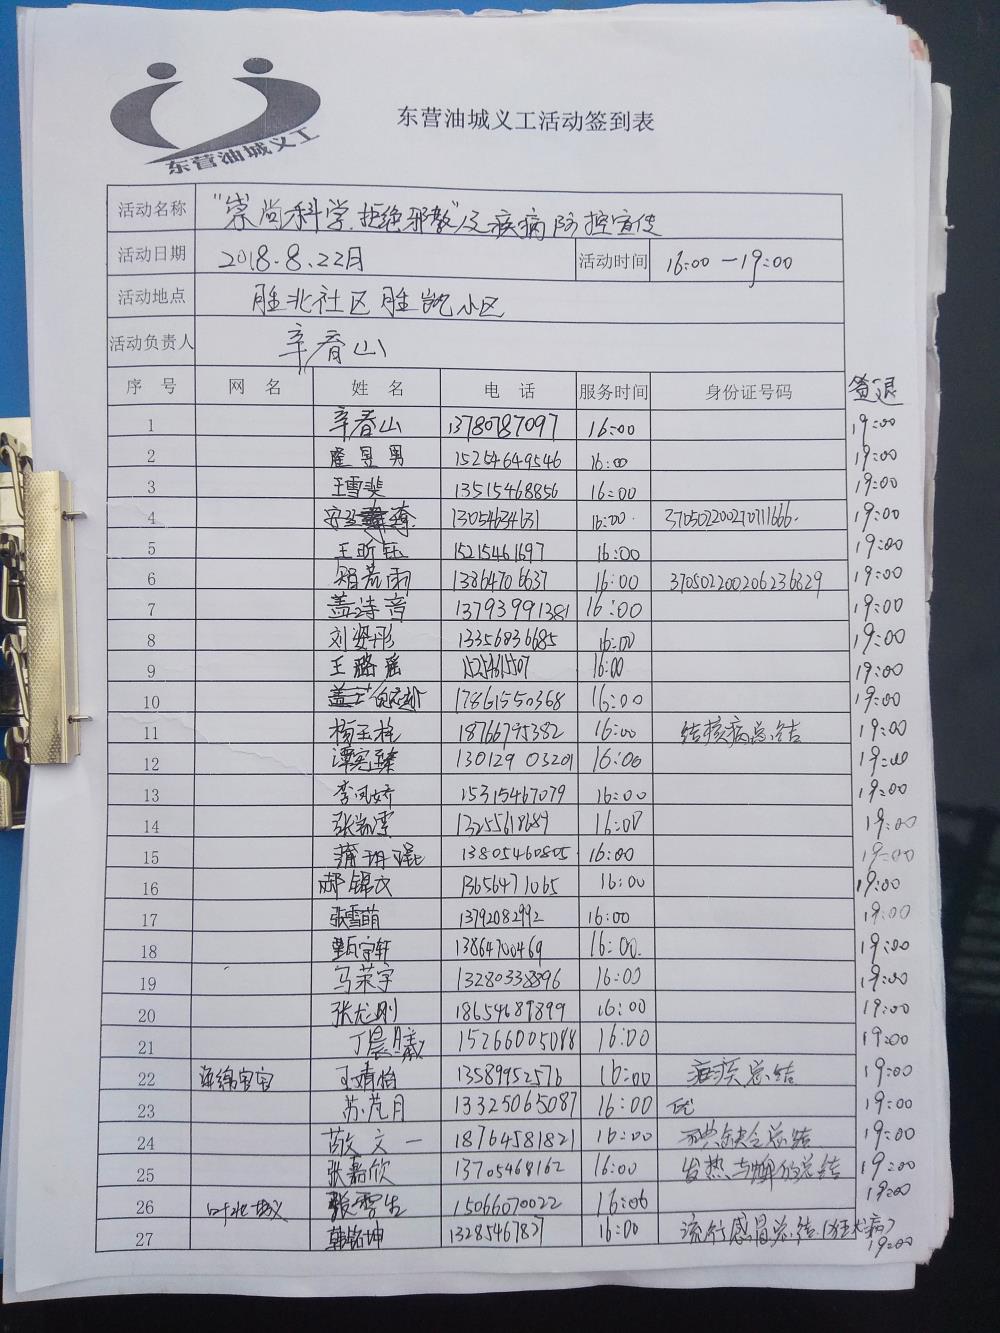 东营油城义工
东营油城义工活动签到表
活动名称 "崇尚科学.拒绝邪教"及疾病防控宣传
活动日期 2018.8.22月 活动时间 16:00—19:00
活动地点 胜北社区胜凯小区
活动负责人 辛春山
序号 网名 姓名 电话 服务时间 身份证号码 签退
1 辛春山 13780787097 16:00 19:00
2 隆昱男 15254649546 16:00 19:00
3 王雪斐 13515468856 16:00 19:00
4 13054634631 16:00 19:00
5 王昕钰 15215461697 16:00 19:00
6 荒雨 13864706637 16:00 19:00
7 盖诗音 13793991381 16:00 19:00
8 刘姿彤 13356836685 16:00 19:00
9 王璐瑶 16:00 19:00
10 17861550368 16:00 19:00
11 杨玉栋 18766795382 16:00 结核病总结 19:00
12 谭宪臻 130129 03201 16:00 19:00
13 李凤娇 15315467079 16:00 19:00
14 张凯雯 13255618689 16:00 19:00
15 蒲玥琨 13805460805 16:00 19:00
16 郝锦文 13656471065 16:00 19:00
17 张雪萌 13792082992 16:00 19:00
18 甄宇轩 13864700469 16:00 19:00
19 马荣宇 13280338896 16:00 19:00
20 张龙刚 18654689899 16:00 19:00
21 丁晨曦 15266005088 16:00 19:00
22 海绵宝宝 王靖怡 13589952576 16:00 疟疾总结 19:00
23 苏芃月 13325065087 16:00 19:00
24 敬文一 18764581821 16:00 总结 19:00
25 张嘉欣 13705468162 16:00 发热与 总结 19:00
26 张雪生 15066070022 16:00 19:00
27 韩铭坤 13285467837 16:00 流行感冒总结(狂犬病) 19:00